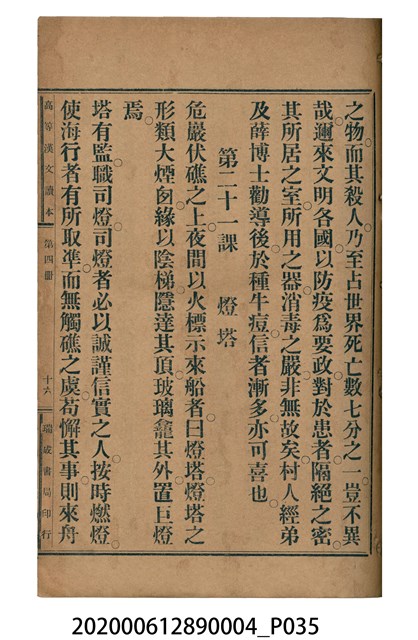 之物。而其殺人。乃至占世界死亡數七分之一。豈不異
哉。邇來文明各國。以防疫爲要政。對於患者隔絕之密。
其所居之室。所用之器。消毒之嚴。非無故矣。村人經弟
及薛博士勸導後。於種牛痘信者漸多。亦可喜也。
第二十一課 燈塔
危巖伏礁之上。夜間以火標示來船者。曰燈塔。燈塔之
形。類大煙囪。緣以陰梯。隱達其頂。玻璃龕其外。置巨燈
焉。
塔有監職司燈。司燈者。必以誠謹信實之人。按時燃燈。
使海行者有所取準。而無觸礁之虞。苟懈其事。則來舟
高等漢文讀本 第四冊 十六 瑞成書局印行
202000612890004_P035